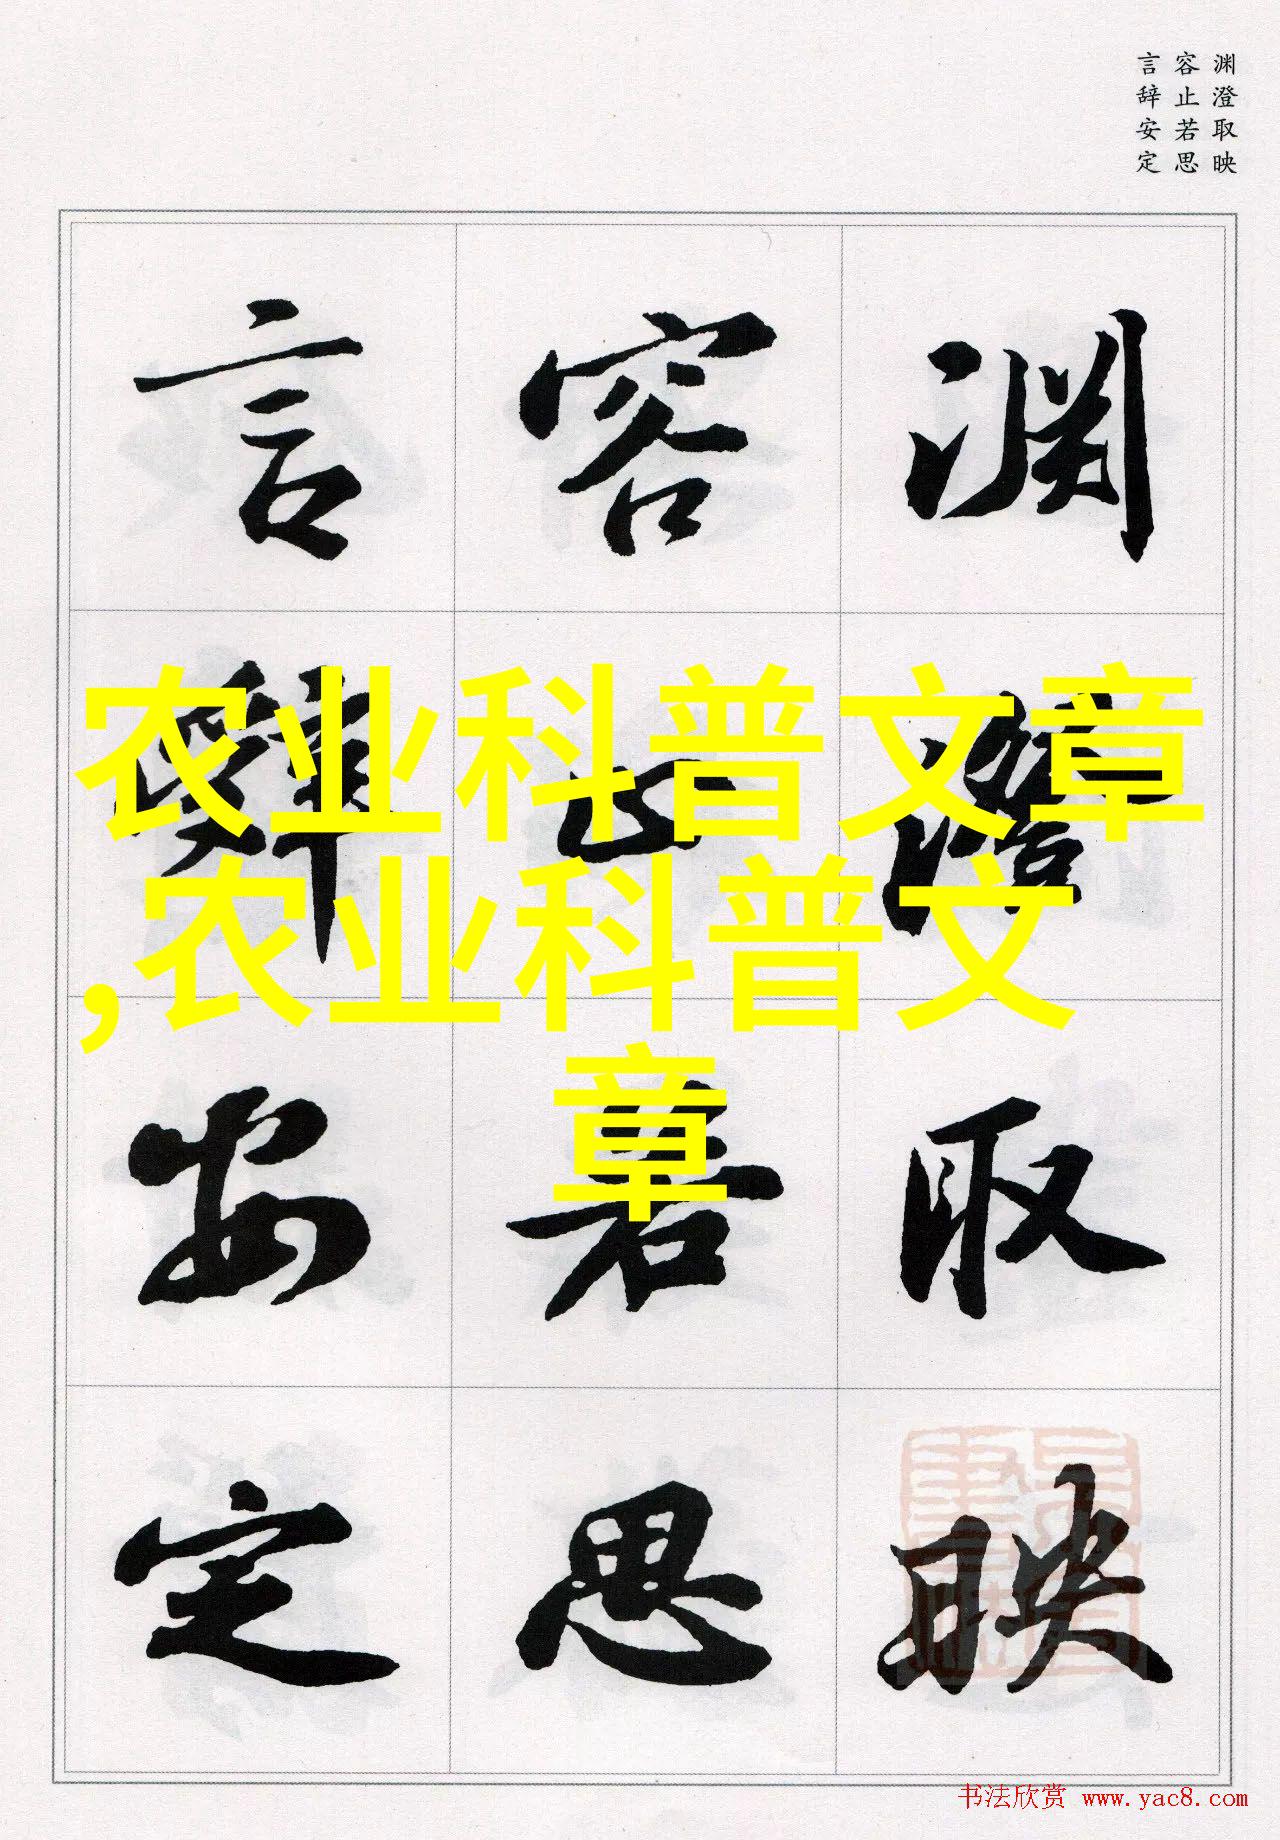 渊澄取映
容止若思
言辞安定
渊澄取映
容止若思
言辞安定
农业科普文章
,农业科普文
章
书法欣赏 www.yac8.com